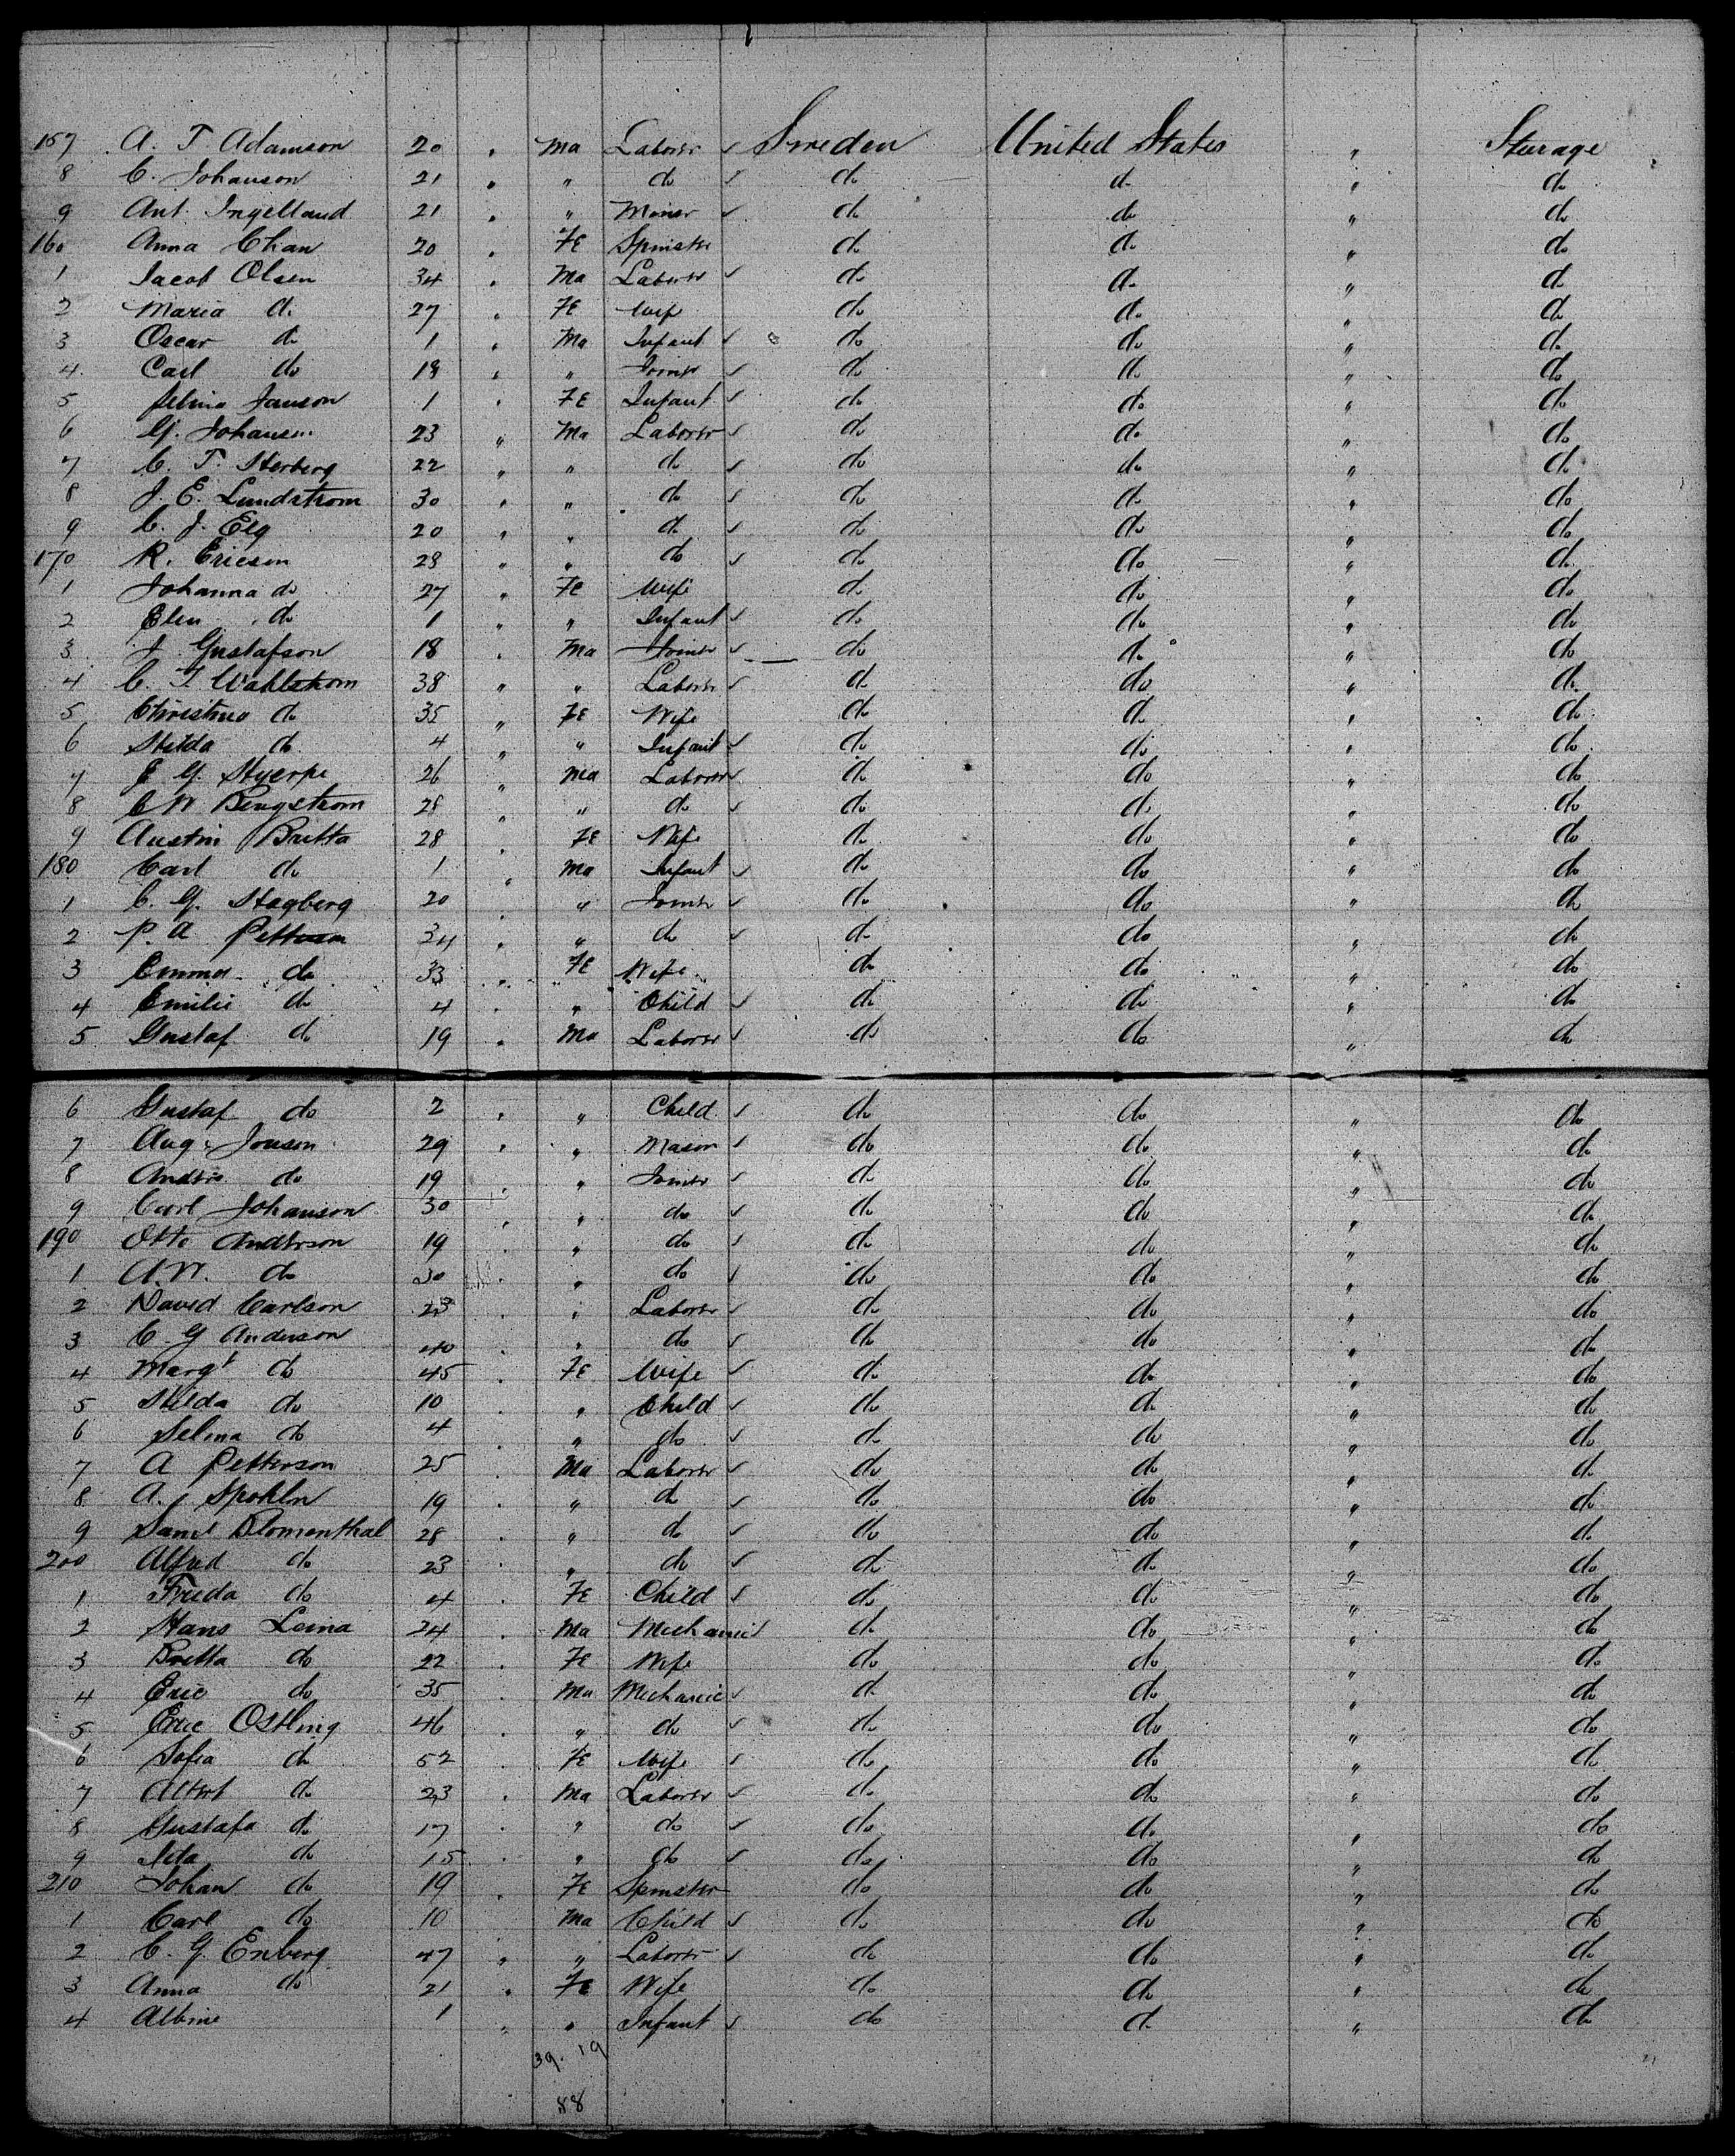 157 A. T. Adamson 20 " Ma Laborer ✓ Sweden United States " Sturage
8 C. Johanson 21 " " do ✓ do do " do
9 Ant. Ingelland 21 " " Miner ✓ do do " do
160 Anna Chan 20 " Fe Spinster do do " do
1 Jacob Olsen 34 " Ma Laborer ✓ do do " do
2 Maria do 27 " Fe Wife do do " do
3 Oscar do 1 " Ma Infant ✓ do do " do
4 Carl do 19 " " Joiner ✓ do do " do
5 Selma Janson 1 " Fe Infant ✓ do do " do
6 G. Johansen 23 " Ma Laborer ✓ do do " do
7 C. T. Herberg 22 " " do ✓ do do " do
8 J. E. Lundstrom 30 " " do ✓ do do " do
9 C. J. Elg 20 " " do ✓ do do " do
170 R. Ericson 28 " " do ✓ do do " do
1 Johanna do 27 " Fe Wife do do " do
2 Elen do 1 " " Infant ✓ do do " do
3 J. Gustafson 18 " Ma Joiner ✓ do do " do
4 C. F. Wahlstrom 38 " " Laborer ✓ do do " do
5 Christina do 35 " Fe Wife do do " do
6 Hilda do 4 " " Infant ✓ do do " do
7 G. Styerpe 26 " Ma Laborer ✓ do do " do
8 C W Bengstrom 28 " " do ✓ do do " do
9 Austin Britta 28 " Fe Wife do do " do
180 Carl do 1 " Ma Infant ✓ do do " do
1 C. G. Hagberg 20 " " Joiner ✓ do do " do
2 P. A Petterson 34 " " do ✓ do do " do
3 Emma do 33 " Fe Wife do do " do
4 Emilie do 4 " " Child ✓ do do " do
5 Gustaf do 19 " Ma Laborer ✓ do do " do
6 Gustaf do 2 " " Child ✓ do do " do
7 Aug. Jonson 29 " " Mason ✓ do do " do
8 Andrs do 19 " " Joiner ✓ do do " do
9 Carl Johanson 30 " " do ✓ do do " do
190 Otto Anderson 19 " " do ✓ do do " do
1 A. W. do 30 " " do ✓ do do " do
2 David Carlson 23 " " Laborer ✓ do do " do
3 C. G Anderson 40 " " do ✓ do do " do
4 Margt do 45 " Fe Wife ✓ do do " do
5 Hilda do 10 " " Child ✓ do do " do
6 Selma do 4 " " do ✓ do do " do
7 A Petterson 25 " Ma Laborer ✓ do do " do
8 A. Spohln 19 " " do ✓ do do " do
9 Saml Blomenthal 28 " " do ✓ do do " do
200 Alfred do 23 " " do ✓ do do " do
1 Frieda do 4 " Fe Child ✓ do do " do
2 Hans Leina 24 " Ma Mechanic ✓ do do " do
3 Britta do 22 " Fe Wife do do " do
4 Eric do 35 " Ma Mechanic ✓ do do " do
5 Eric Ostling 46 " " do ✓ do do " do
6 Sofia do 52 " Fe Wife ✓ do do " do
7 Albert do 23 " Ma Laborer ✓ do do " do
8 Gustafa do 17 " " do ✓ do do " do
9 do 15 " " do ✓ do do " do
210 Johan do 19 " Fe Spinster do do " do
1 Carl do 10 Ma Child ✓ do do " do
2 C. G. Enberg 47 " " Laborer ✓ do do " do
3 Anna do 21 " Fe Wife do do " do
4 Albine 1 " " Infant ✓ do do " do
39. 19
88